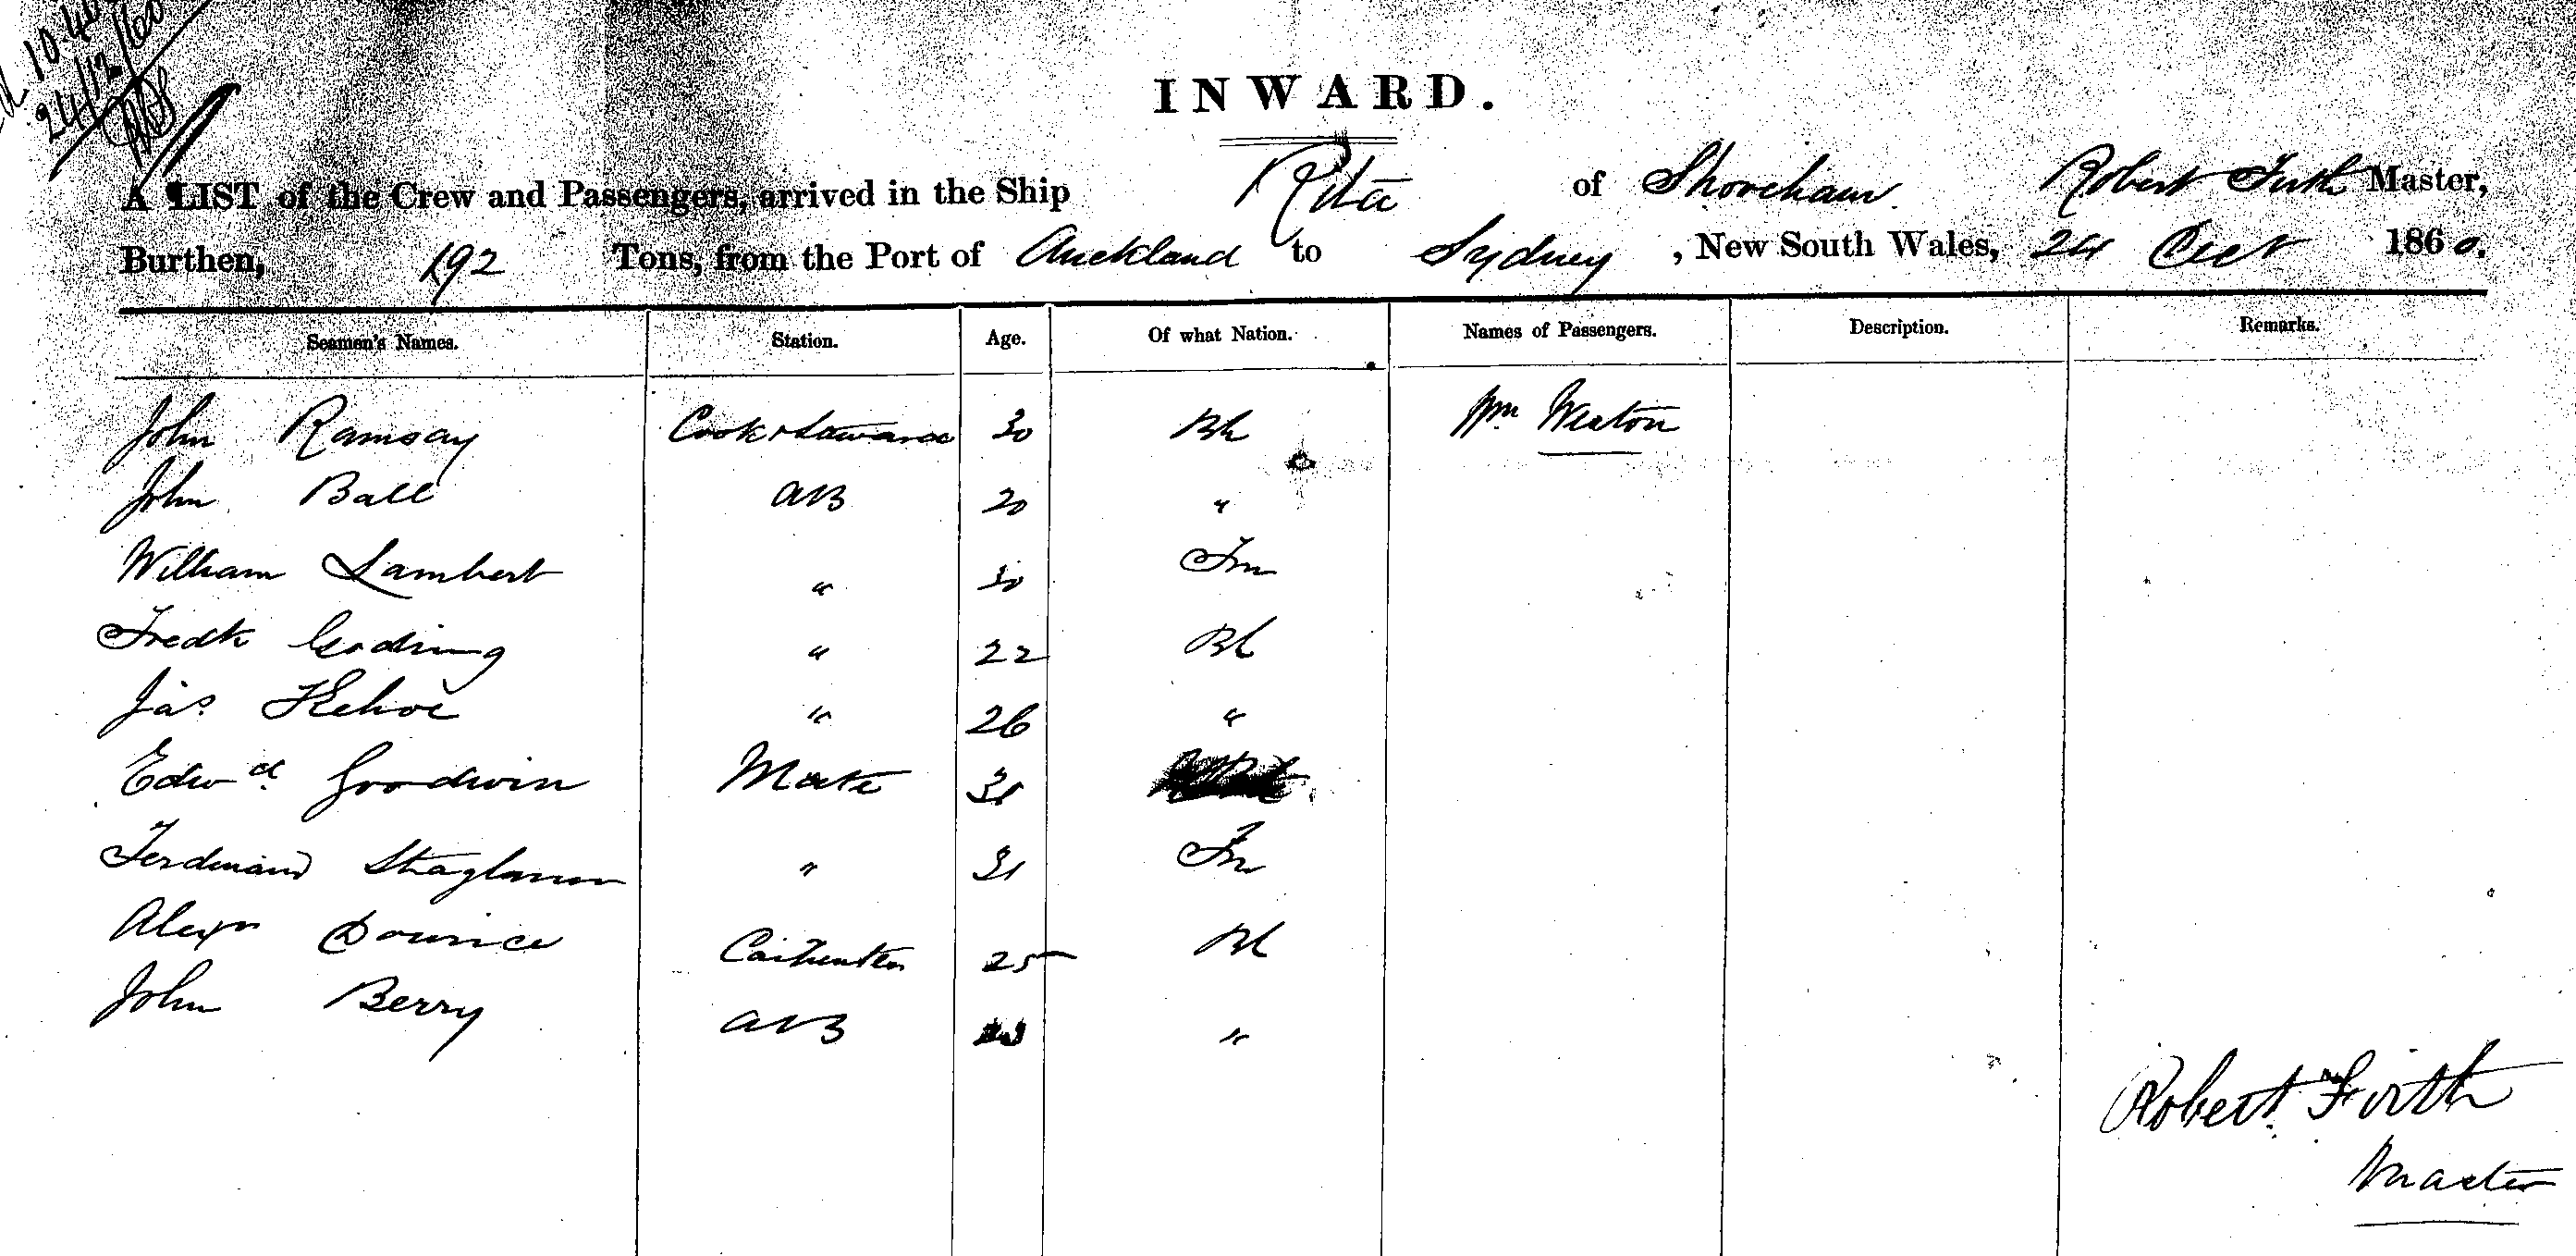 10.4
24/12/60
INWARD.
A LIST of the Crew and Passengers, arrived in the Ship Rita of Shoreham Robert Firth Master,
Burthen, 192 Tons, from the Port of Auckland to Sydney, New South Wales, 24 Decr 1860.
Seamen's Names. Station. Age. Of what Nation. Names of Passengers. Description. Remarks.
John Ramsay Cook & Steward 30 Bh Wm Weston
John Ball AB 20 "
William Lambert " 30 Frn
Fredk Godring " 22 Bh
Jas Kehoe " 26 "
Edwd Goodwin Mate 31
Ferdinand " 31 Fn
Alexr Carpenter 25 Bh
John Berry AB "
Robert Firth
Master